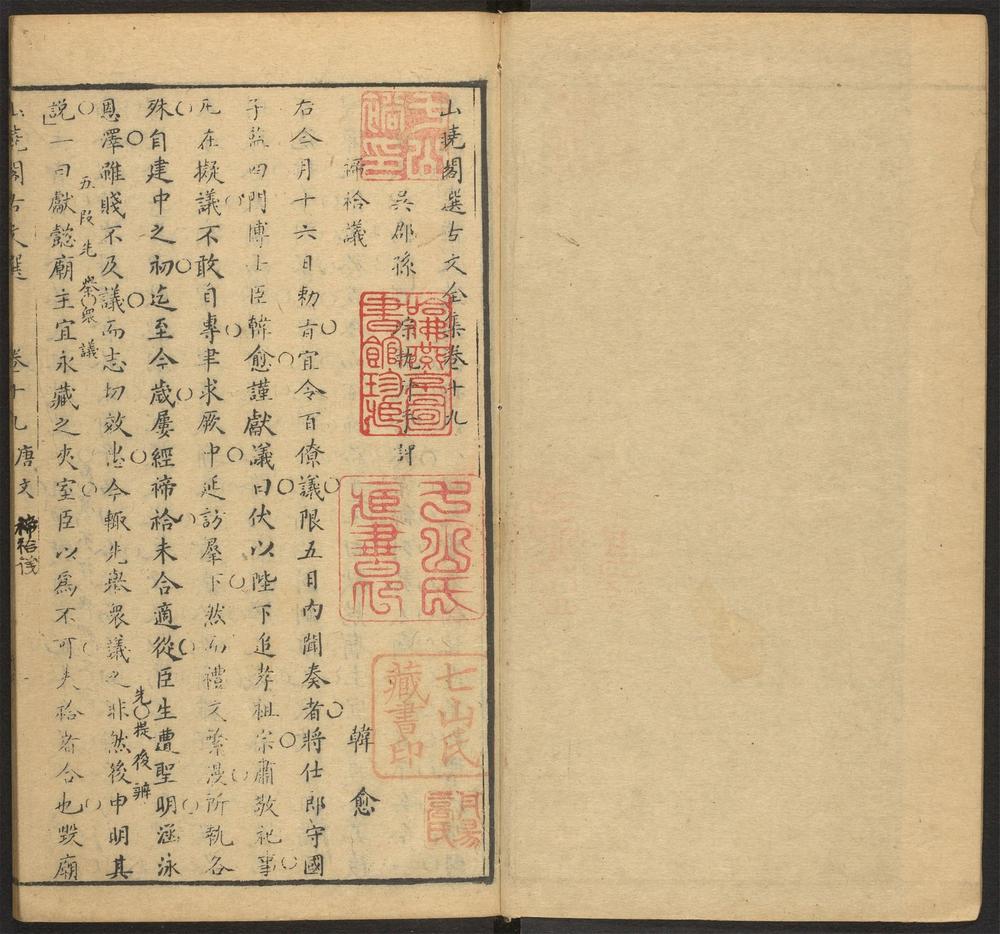 山曉閣選古文全集卷十九
吳郡孫琮執升手評
禘祫議
韓愈
右今月十六日勅旨宜令百僚議限五日內聞奏者將仕郎守國
子監四門博士臣韓愈謹獻議曰伏以陛下追孝祖宗肅敬祀事
凡在擬議不敢自專聿求厥中延訪羣下然而禮文繁漫所執各
殊自建中之初迄至今歲屢經禘祫未合適從臣生遭聖明涵泳
恩澤雖賤不及議而志切效忠今輒先舉衆議之非然後申明其
先提後辨
說一曰獻懿廟主宜永藏之夾室臣以爲不可夫祫者合也毀廟
五段先舉衆議
山曉閣古文選
卷十九
唐文
禘祫議
哈佛燕京圖書館珍藏
七山氏藏書印
七山氏藏書印